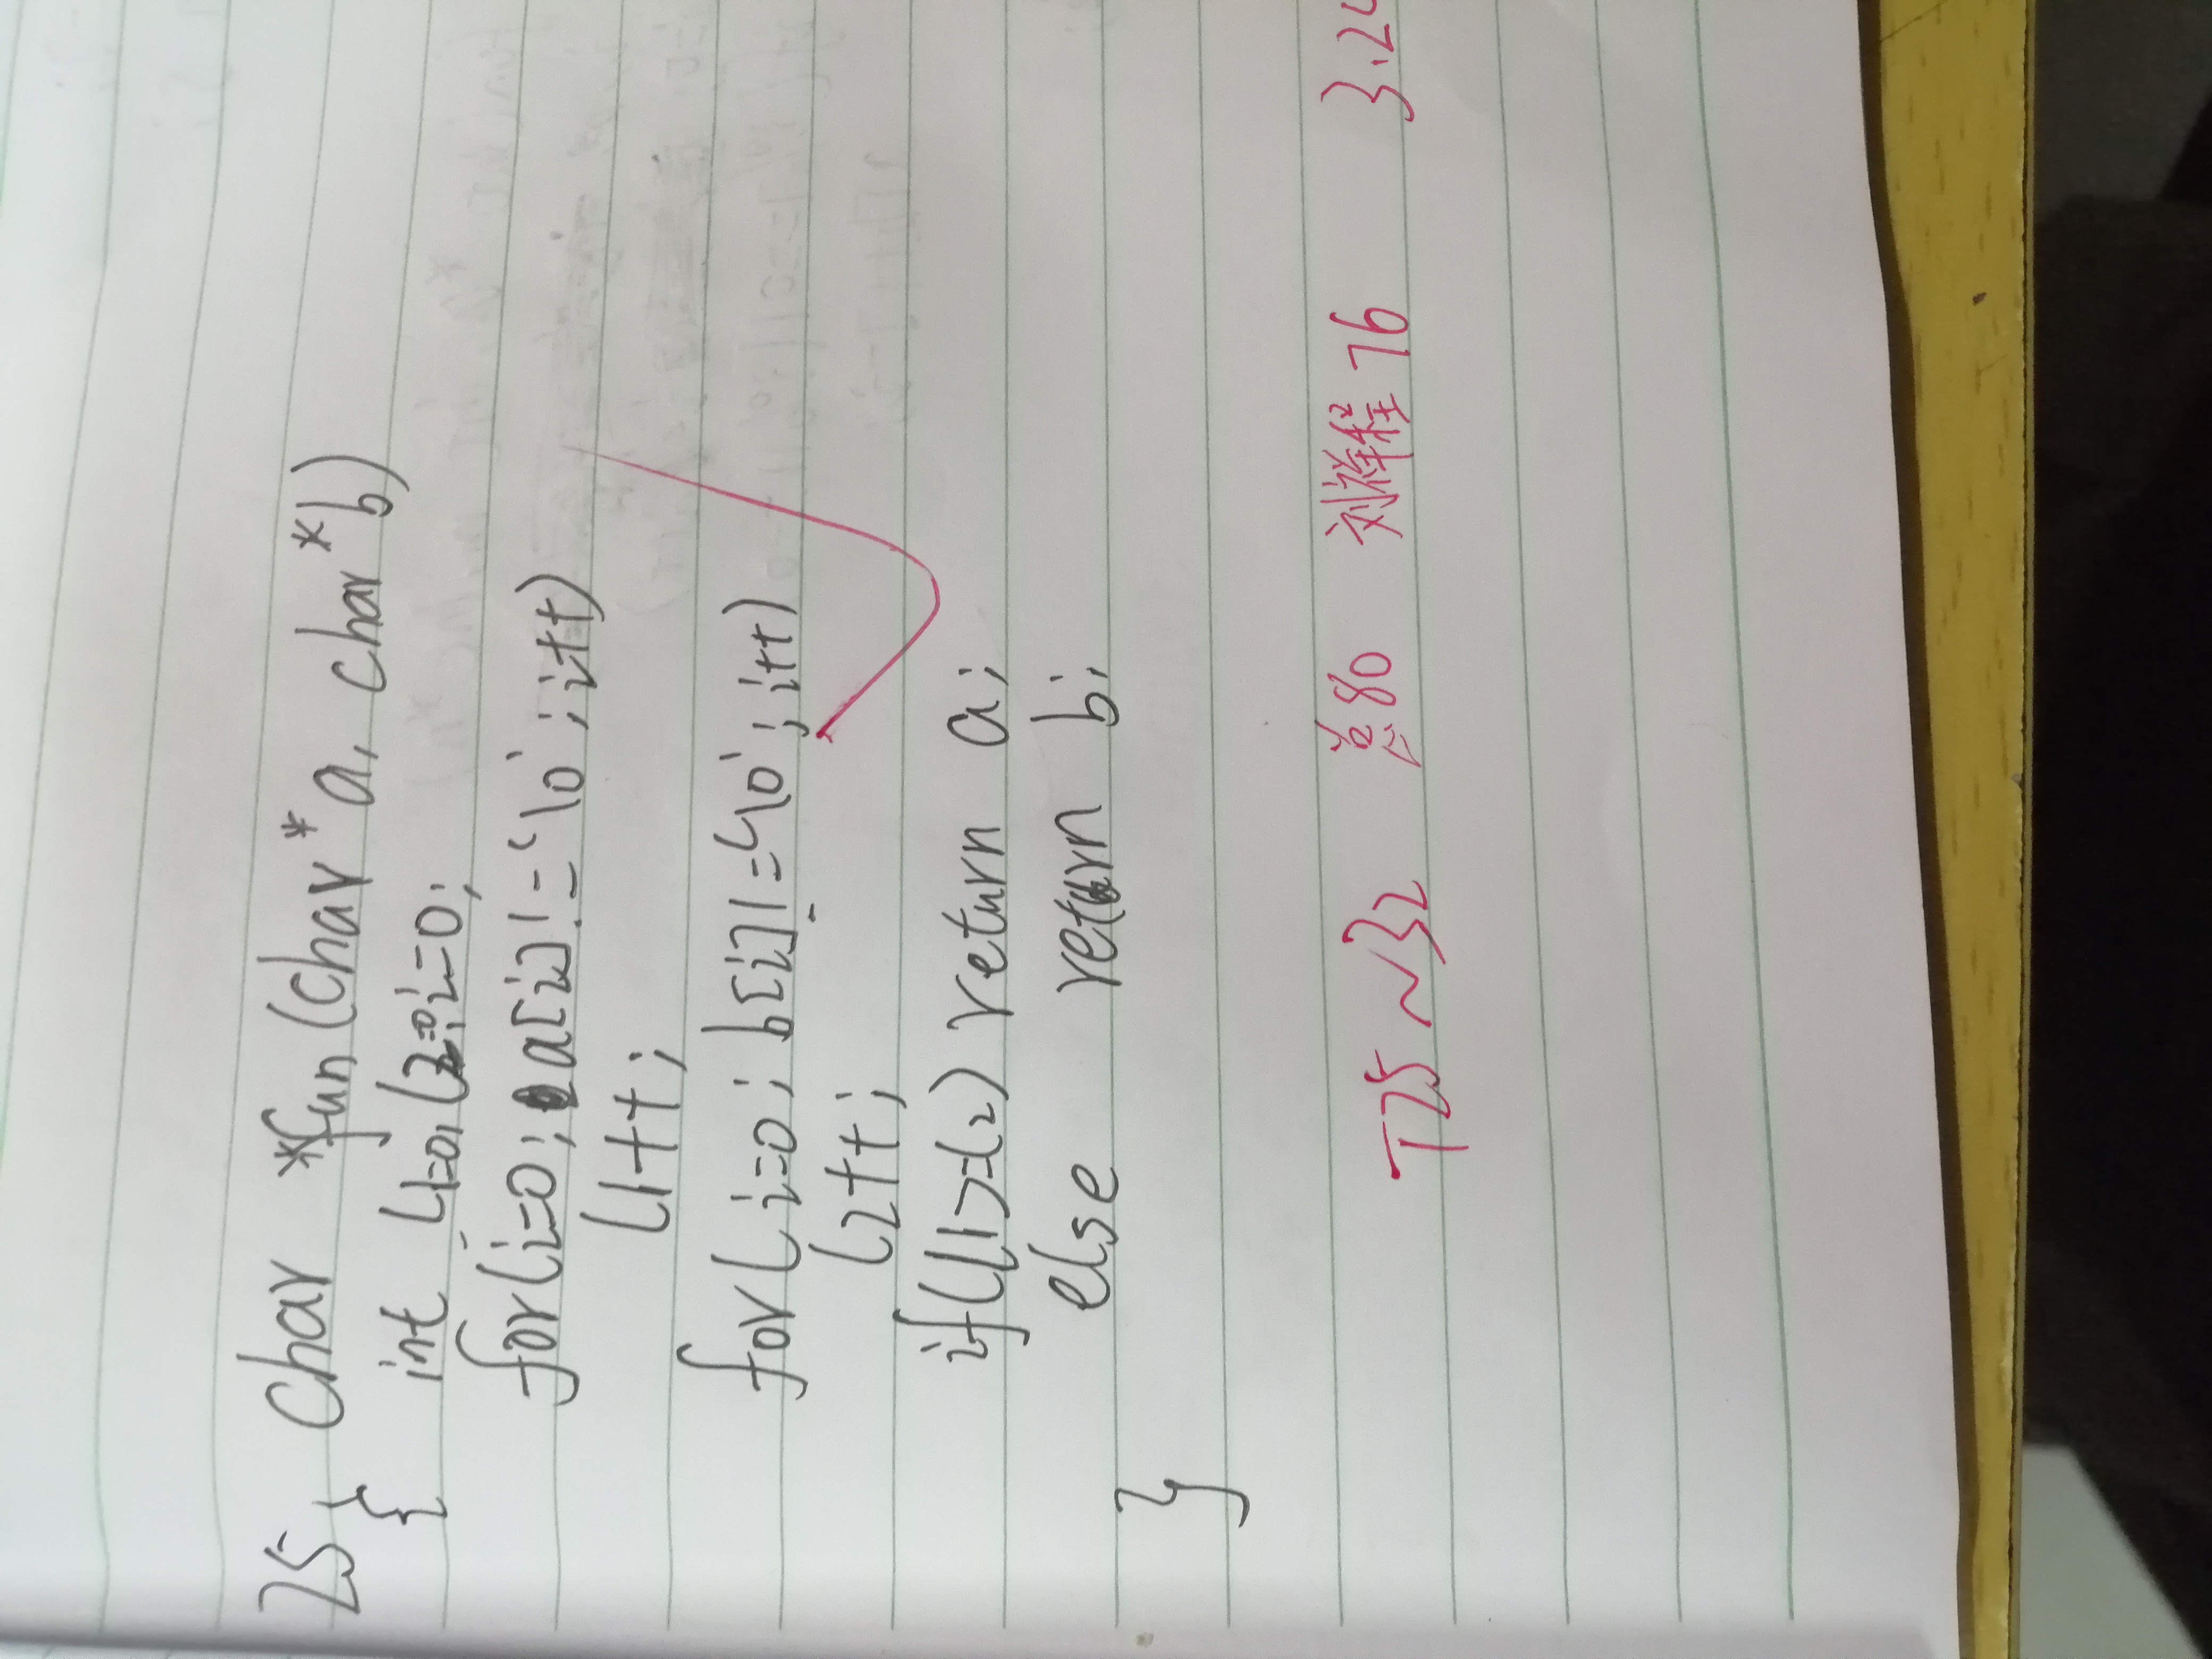 25, char *fun(char *a, char *b)
{ int l1=0, l2=0, i=0;
for(i=0; a[i]!='\0'; i++)
l1++;
for(i=0; b[i]!='\0'; i++)
l2++;
if(l1>=l2) return a;
else return b;
}
T25~32 总80 刘祥程 76 3.24